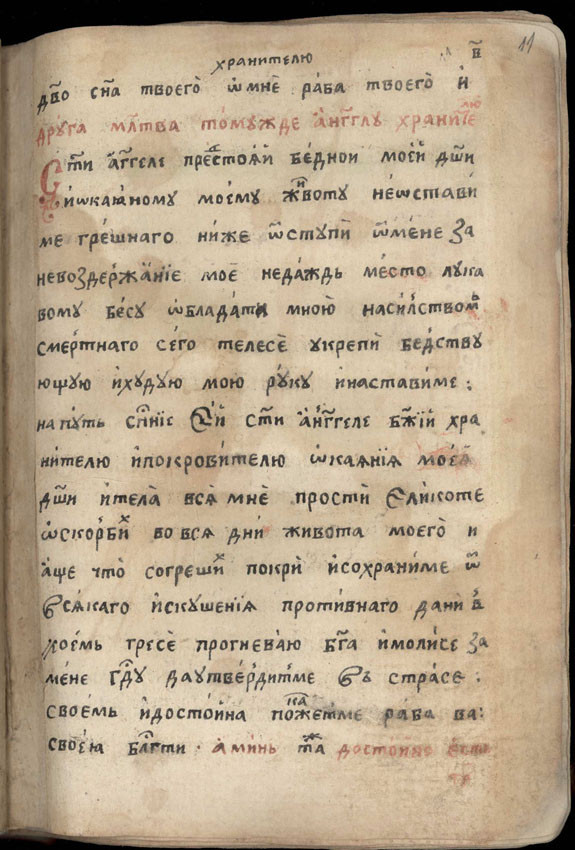 хранителю
11
дв҃о сн҃а твоего̀ ѡ҆мнѐ раба твоего̀ и҆
друга мл҃тва то́мужде а҆нг҃глу храните
С҃ти а҆нг҃геле престоѧ́й бе́днои мое́й дш҃и
и҆ѡкаа́нному моемꙋ животу не ѡстави
ме гре́шнаго ниже ѿступѝ ѿмене за
невоздержа́нїе моѐ неда́ждь ме́сто лука
вому бе́су ѡ҆блада́ти мною наси́лством
сме́ртнаго се́го телесѐ укрепѝ бе́дству
ющую и҆худую мою ру́ку и҆наставиме :
на пу́ть сп҃нїе Е҆й ст҃и а҆нг҃геле бж҃їй хра
нителю и҆покрови́телю ѡ҆каѧнїѧ моеѧ̀
дш҃и и҆тела̀ всѧ̀ мнѐ простѝ Е҆ликоте
ѡ҆скорби́х во всѧ дни́ живота моего̀ и
а҆ще что̀ согреши́х покрѝ и҆сохрани́ме ѿ
всѧкаго и҆скушенїѧ проти́внаго да ни в
коемь гресе прогневаю бг҃а и҆моли́се за
мене гд҃у да утве́рдитме въ страсе :
свое́мь и҆досто́ина пока́жетме раба ва:
своеѧ̀ бл҃гти · а҆минь та҃ж досто́йно е҆сть